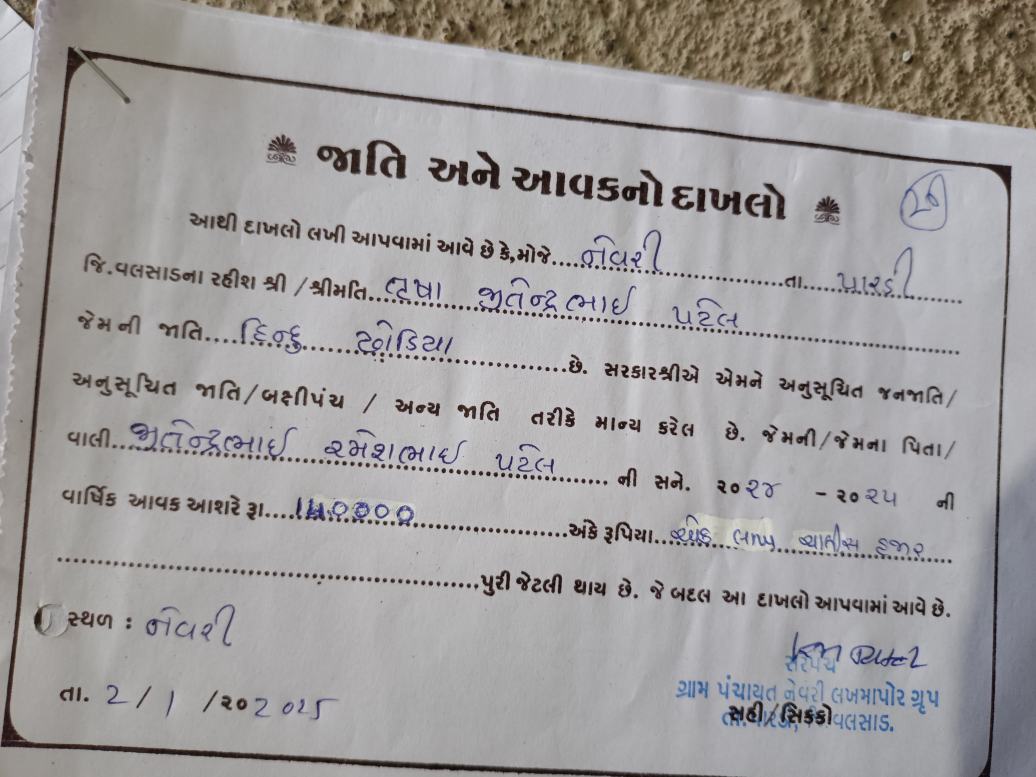 જાતિ અને આવકનો દાખલો
આથી દાખલો લખી આપવામાં આવે છે કે,મોજે....નેવરી.....................તા....પારડી......
જિ.વલસાડના રહીશ શ્રી /શ્રીમતિ...તૃષા જીતેન્દ્રભાઇ પટેલ.....................
જેમની જાતિ....હિન્દુ ધોડિયા..................છે. સરકારશ્રીએ એમને અનુસૂચિત જનજાતિ/
અનુસૂચિત જાતિ/બક્ષીપંચ / અન્ય જાતિ તરીકે માન્ય કરેલ છે. જેમની/જેમના પિતા/
વાલી...જીતેન્દ્રભાઇ રમેશભાઇ પટેલ....... ની સને. ૨૦૨૪ - ૨૦૨૫ ની
વાર્ષિક આવક આશરે રૂા....140000.....................અંકે રૂપિયા...એક લાખ ચાલીસ હજાર...
.....................................................પુરી જેટલી થાય છે. જે બદલ આ દાખલો આપવામાં આવે છે.
સ્થળ : નેવરી
સરપંચ
ગ્રામ પંચાયત નેવરી લખમાપોર ગ્રૃપ
તા. 2/1/૨૦2025
સહી/સિક્કો
તા.પારડી, જિ.વલસાડ.